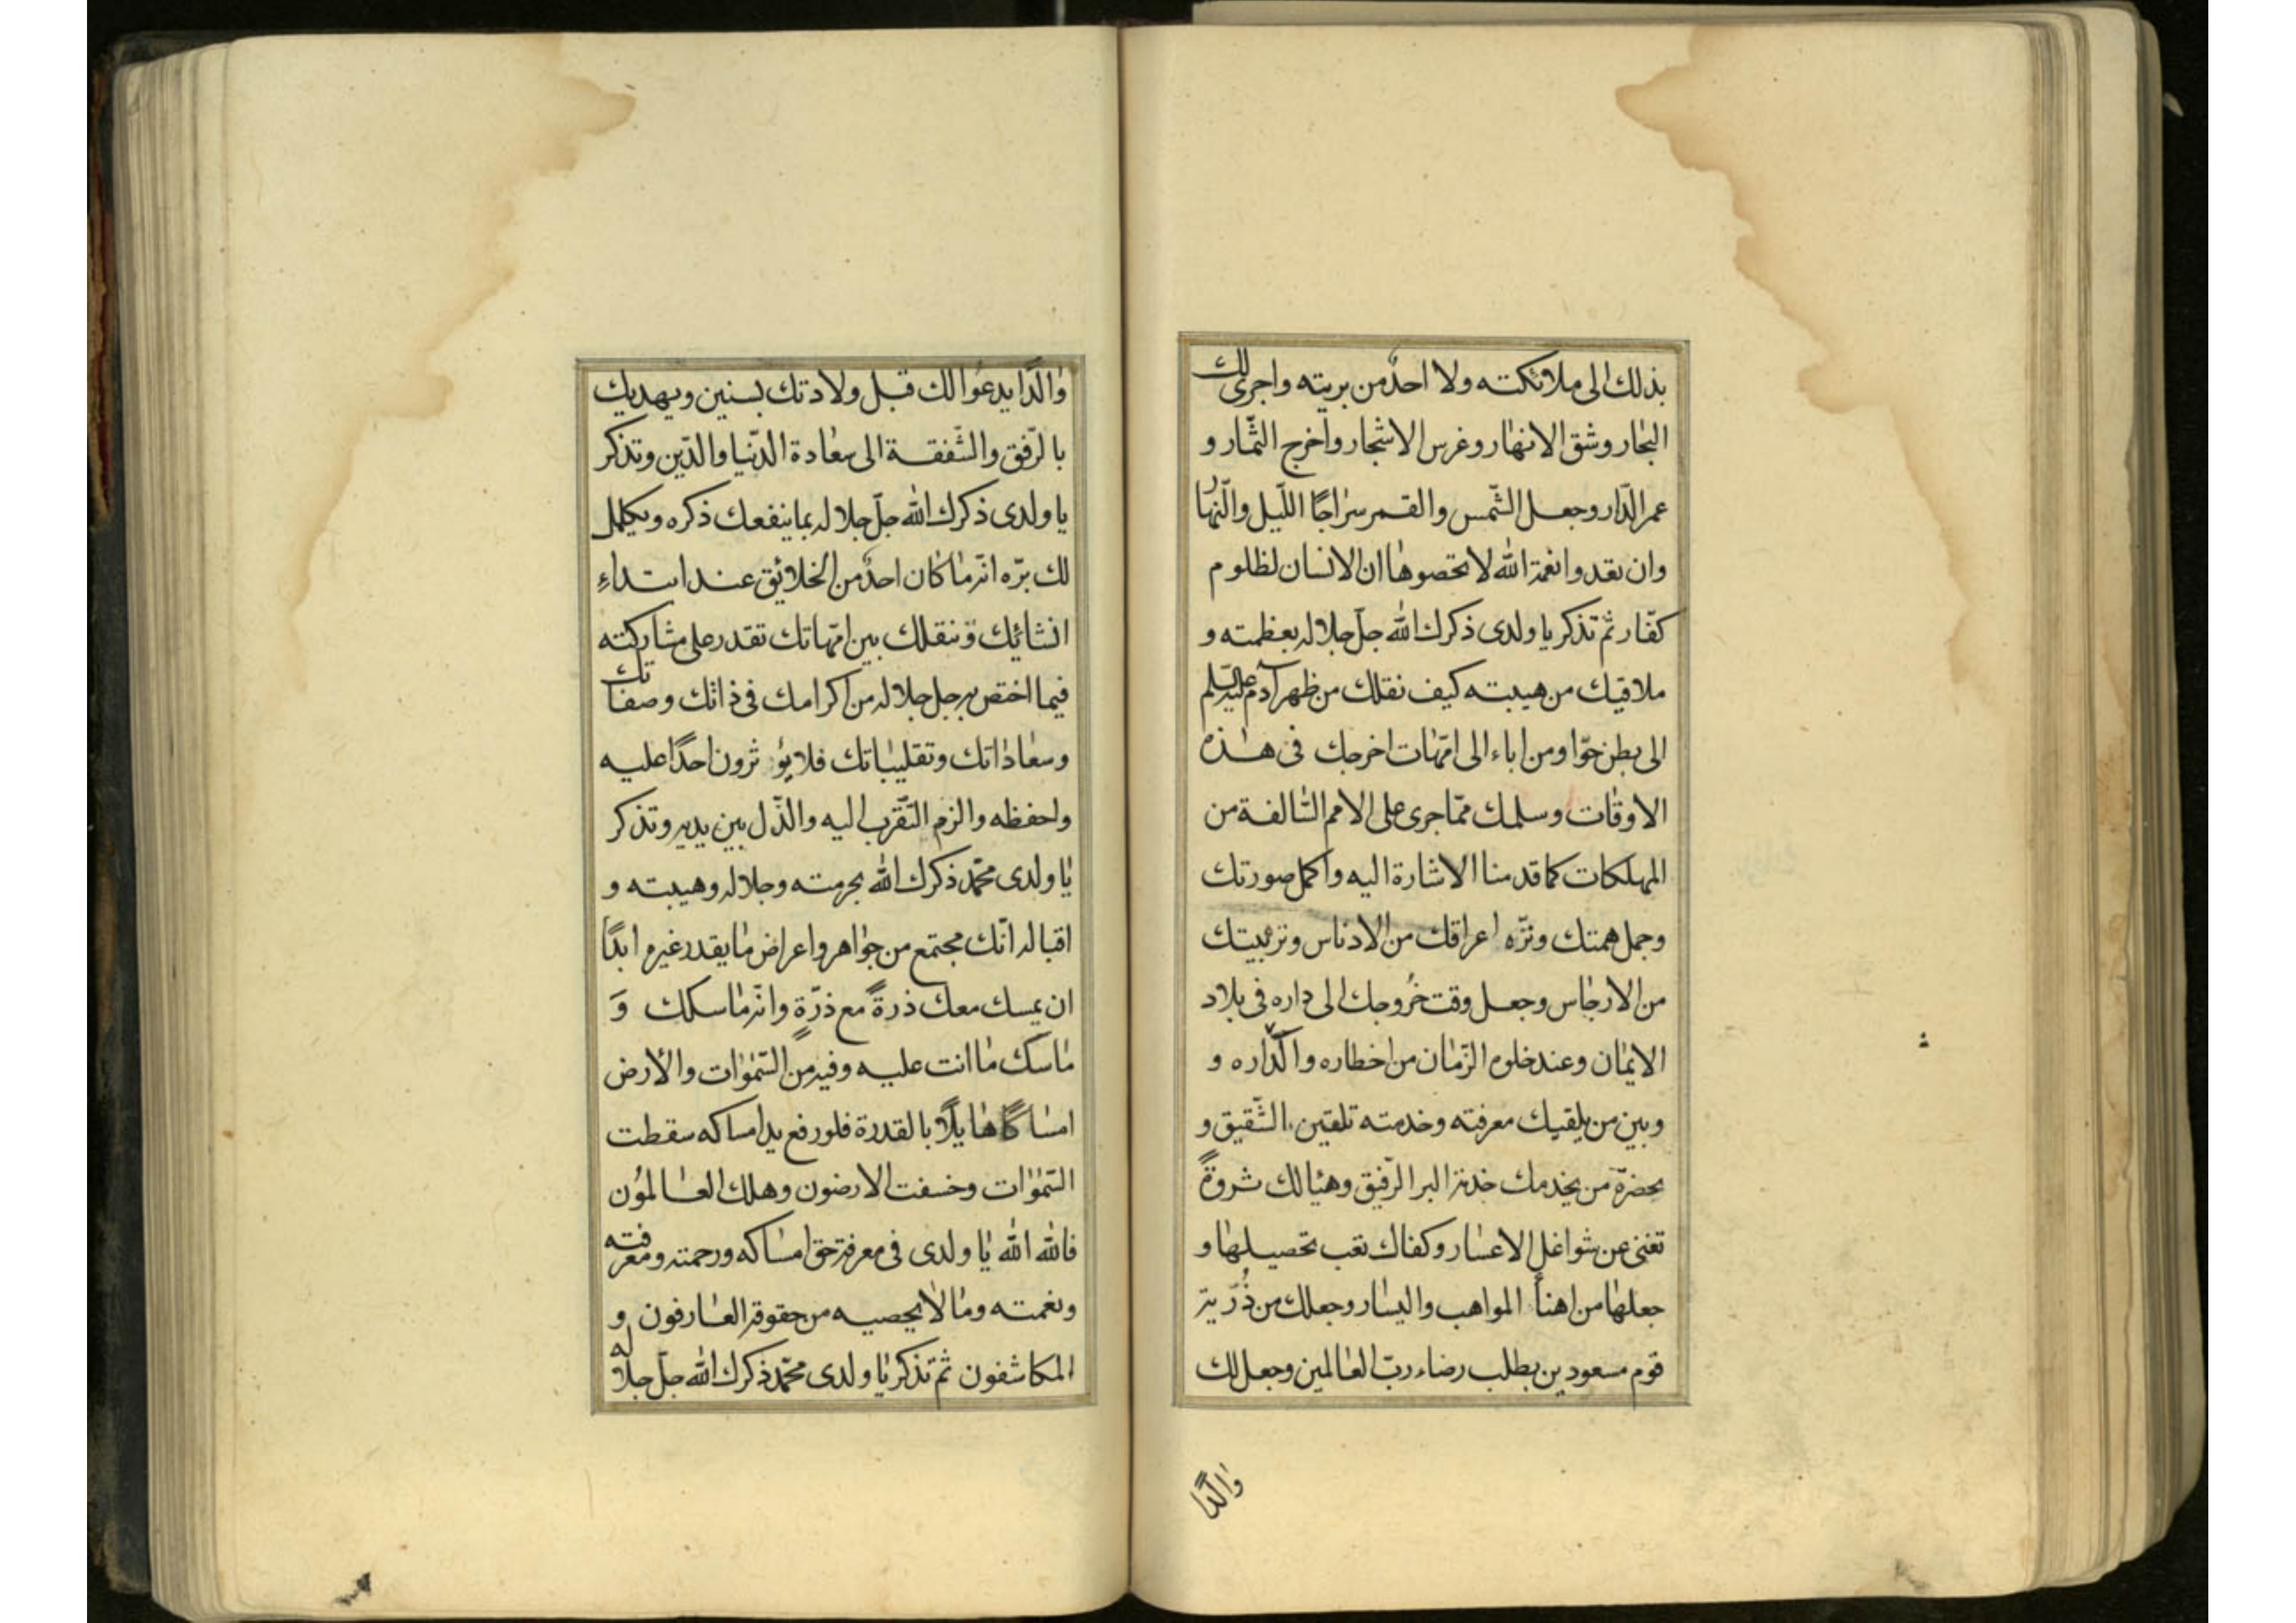 بذلك الى ملائكته ولا احدٌ من بريته واجرى لك
البحار وشق الانهار وغرس الاشجار واخرج الثمار و
عمر الدّار وجعل الشّمس والقمر سراجًا اللّيل والنّهار
وان تعدوا نعمة الله لا تحصوها ان الانسان لظلوم
كفّار ثم تذكر يا ولدى ذكرك الله جلّ جلاله بعظمته و
ملاقيك من هيبته كيف نقلك من ظهر آدم عليه السلم
الى بطن حوّا ومن اباء الى امّهات اخرجك فى هذه
الاوقات وسلمك ممّا جرى على الامم السّالفة من
المهلكات كما قدمنا الاشارة اليه واكمل صورتك
وجمل همتك ونزّه اعراقك من الادناس وتربيتك
من الارجاس وجعل وقت خُروجك الى داره فى بلاد
الايمان وعند خلوه الزّمان من اخطاره واكداره و
وبين من يلقيك معرفته وخدمته تلقين الشّقيق و
بحضرة من يخدمك خدمة البر الرّفيق وهيّا لك ثروةً
تغنى عن شواغل الاعسار وكفاك تعب تحصيلها و
جعلها من اهنأ المواهب واليسار وجعلك من ذُرّية
قوم مسعودين بطلب رضاء ربّ العالمين وجعل لك
والدًا
والدًا يدعوا لك قبل ولادتك بسنين ويهديك
بالرّفق والشّفقة الى سعادة الدّنيا والدّين وتذكر
يا ولدى ذكرك الله جلّ جلاله بما ينفعك ذكره ويكمل
لك برّه انّه ما كان احدٌ من الخلائق عند ابتداءِ
انشائك وتنقلك بين امّهاتك تقدر على مشاركته
فيما اختص به جل جلاله من اكرامك فى ذاتك وصفاتك
وسعاداتك وتقليباتك فلا يؤثرون احدًا عليه
واحفظه والزم التّقرب اليه والذّل بين يديه وتذكر
يا ولدى محمّد ذكرك الله بحرمته وجلاله وهيبته و
اقباله انّك مجتمع من جواهر واعراض ما يقدر غيره ابدًا
ان يمسك معك ذرةً مع ذرّةٍ وانّه ماسكك وَ
ماسك ما انت عليه وفيه من السّموات والأرض
امساكًا هايلًا بالقدرة فلو رفع يد امساكه سقطت
السّموات وخسفت الارضون وهلك العالمُون
فالله الله يا ولدى فى معرفة حق امساكه ورحمته ومعرفته
ونعمته وما لا يحصيه من حقوقه العارفون و
المكاشفون ثم تذكر يا ولدى محمّد ذكرك الله جلّ جلاله